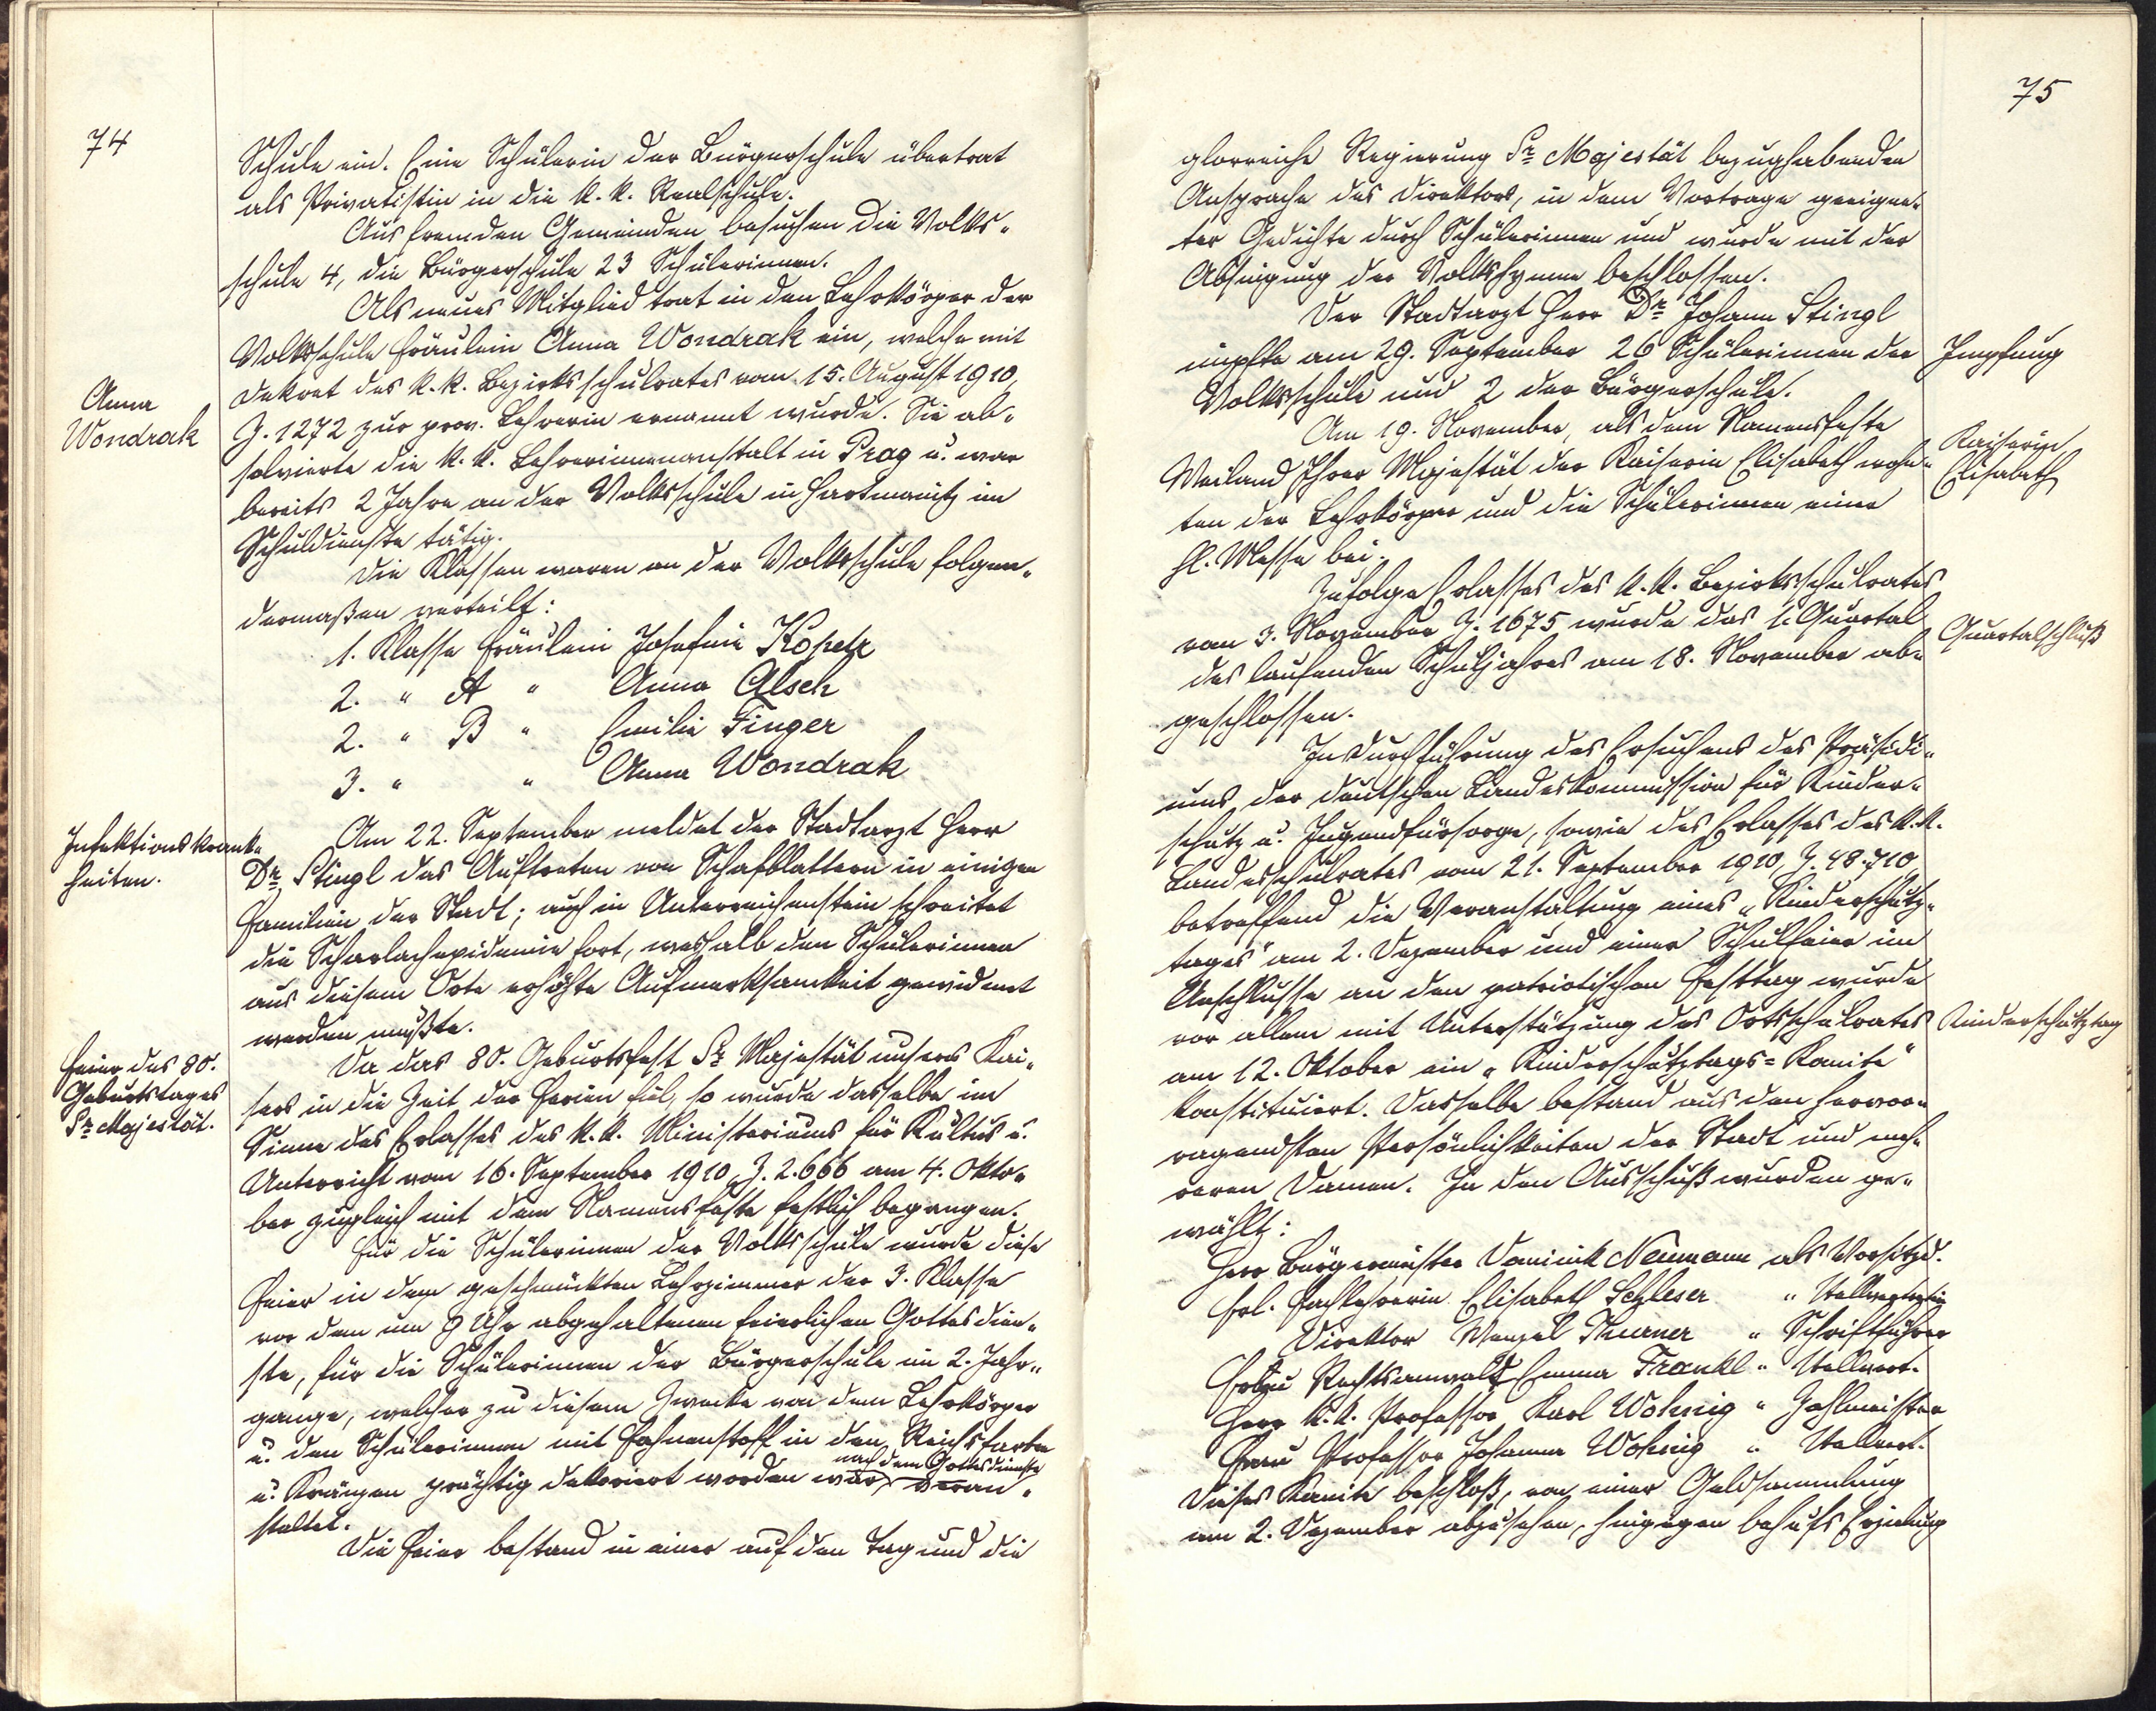 74
Schule ein. Eine Schülerin der Bürgerschule übertrat
als Privatistin in die k. k. Realschule.
Aus fremden Gemeinden besuchen die Volks-
schule 4, die Bürgerschule 23 Schülerinnen.
Als neues Mitglied trat in den Lehrkörper der
Volksschule Fräulein Anna Wondrak ein, welche mit
Dekret des k. k. Bezirksschulrates vom 15. August 1910,
Anna
Wondrak
Z. 1272 zur prov. Lehrerin ernannt wurde. Sie ab-
solvierte die k. k. Lehrerinnenanstalt in Prag u. war
bereits 2 Jahre an der Volksschule in Hartmanitz im
Schuldienste tätig.
Die Klassen waren an der Volksschule folgen-
dermaßen verteilt:
1. Klasse Fräulein Josefine Kopetz
2. " A " Anna Alsch
2. " B " Emilie Finger
3. " " Anna Wondrak
Infektionskrank-
heiten.
Am 22. September meldet der Stadtarzt Herr
Dr. Stingl das Auftreten von Schafblattern in einigen
Familien der Stadt; auch in Unterreichenstein schreitet
die Scharlachepidemie fort, weshalb den Schülerinnen
aus diesem Orte erhöhte Aufmerksamkeit gewidmet
werden mußte.
Feier des 80.
Geburtstages
Sr. Majestät.
Da das 80. Geburtsfest Sr. Majestät unseres Kai-
sers in die Zeit der Ferien fiel, so wurde dasselbe im
Sinne des Erlasses des k. k. Ministeriums für Kultus u.
Unterricht vom 16. September 1910, Z. 2.666 am 4. Okto-
ber zugleich mit dem Namensfeste festlich begangen.
Für die Schülerinnen der Volksschule wurde diese
Feier in dem geschmückten Lehrzimmer der 3. Klasse
vor dem um 9 Uhr abgehaltenen feierlichen Gottesdien-
ste, für die Schülerinnen der Bürgerschule im 2. Jahr-
gange, welcher zu diesem Zwecke von dem Lehrkörper
u. den Schülerinnen mit Fahnenstoff in den Reichsfarben
nach dem Gottesdienste
u. Kränzen prächtig dekoriert worden war, veran-
staltet.
Die Feier bestand in einer auf den Tag und die
75
glorreiche Regierung Sr. Majestät bezughabenden
Ansprache des Direktors, in dem Vortrage geeigne-
ter Gedichte durch Schülerinnen und wurde mit der
Absingung der Volkshymne beschlossen.
Der Stadtarzt Herr Dr. Johann Stingl
impfte am 29. September 26 Schülerinnen der
Impfung
Volksschule und 2 der Bürgerschule.
Am 19. November, als dem Namensfeste
Kaiserin
Elisabeth
Weiland Ihrer Majestät der Kaiserin Elisabeth wohn-
ten der Lehrkörper und die Schülerinnen einer
hl. Messe bei.
Zufolge Erlasses des k. k. Bezirksschulrates
vom 3. November Z. 1675 wurde das 1. Quartal
Quartalschluß
des laufenden Schuljahres am 18. November ab-
geschlossen.
In Durchführung des Ersuchens des Präsidi-
ums der deutschen Landeskommission für Kinder-
schutz u. Jugendfürsorge, sowie des Erlasses des k. k.
Landesschulrates vom 21. September 1910, Z. 48.710,
betreffend die Veranstaltung eines „Kinderschutz-
tages" am 2. Dezember und einer Schulfeier im
Anschlusse an den patriotischen Festtag wurde
vor allem mit Unterstützung des Ortsschulrates
Kinderschutztag
am 12. Oktober ein „Kinderschutztags-Komite"
konstituiert. Dasselbe bestand aus den hervor-
ragendsten Persönlichkeiten der Stadt und meh-
reren Damen. In den Ausschuß wurden ge-
wählt:
Herr Bürgermeister Dominik Neumann als Vorsitzd.
Frl. Fachlehrerin Elisabeth Schleser " Stellvertreterin
Direktor Wenzel Thurner " Schriftführer
Frau Rechtsanwalt Emma Frankl " Stellvert.
Herr k. k. Professor Karl Wohnig " Zahlmeister
Frau Professor Johanna Wohnig " Stellvert.
Dieses Komite beschloß, von einer Geldsammlung
am 2. Dezember abzusehen, hingegen behufs Erzielung